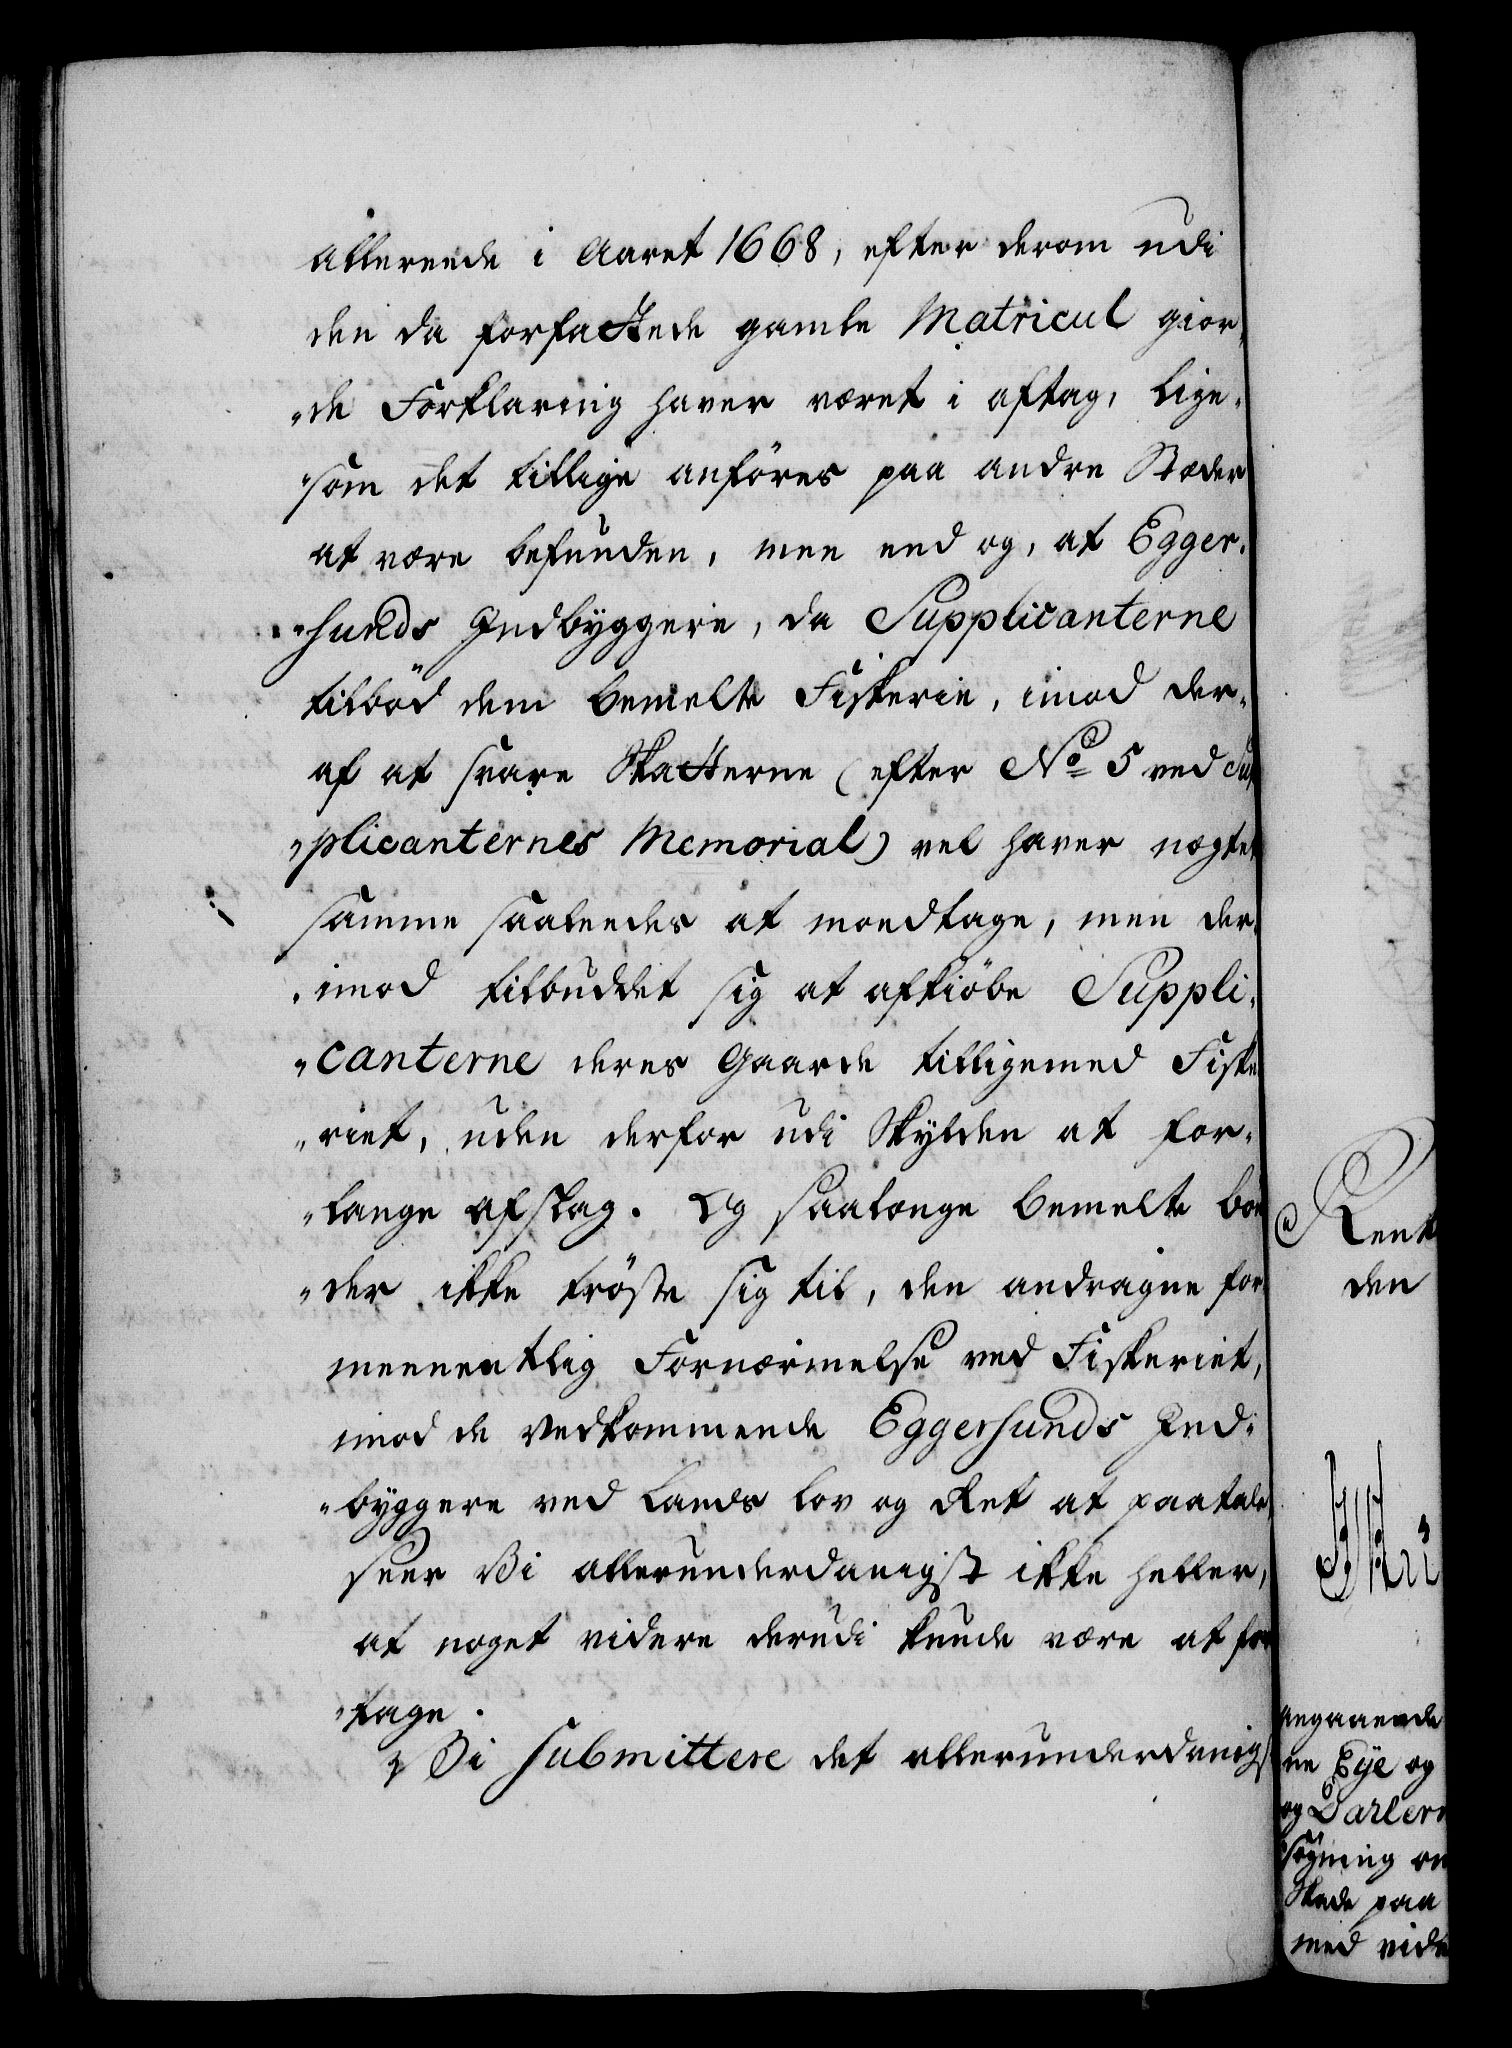 allereede i Aaret 1668, efter derom udi
den da forfattede gamle Matricul gior¬
„de Forklaring haver været i aftag, lige¬
„som det tillige anföres paa andre Stæder
at være befunden, men end og, at Egger¬
„sunds Indbyggere, da Supplicanterne
tilböd dem bemelte Fiskerie, imod der¬
af at svare Skatterne (efter No 5 ved Sup
„plicanternes Memorial) vel haver nægtet
samme saaleedes at modtage, men der¬
„imod tilbuddet sig at afkiöbe Suppli¬
„canterne deres Gaarde tilligemed Fiske
„riet, uden derfor udi Skylden at for¬
„lange afslag. Og saalænge bemelte bön
„der ikke tröste sig til, den andragne for
meenentlig Fornærmelse ved Fiskeriet,
imod de Vedkommende Eggersunds Ind¬
„byggere ved Lands Lov og Ret at paatale,
seer Vi allerunderdanigst ikke heller,
at noget videre derudi kunde være at for
„tage.
Vi submittere det allerunderdanigs
Rent
den
angaaende
ne Eye og
og
søgning om
Skade paa
med vide